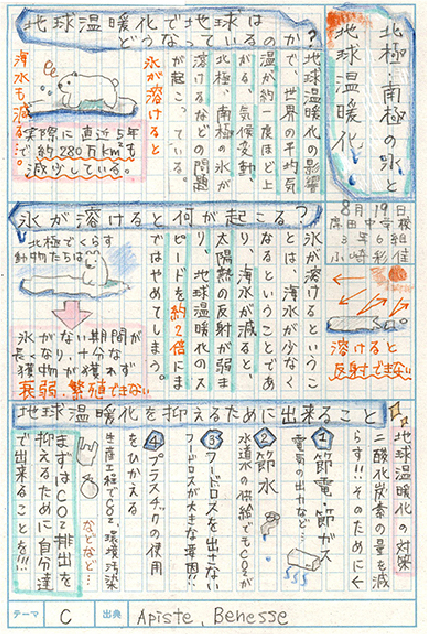 北極・南極の氷と
地球温暖化
8月19日
岸田中学校
3年6組
地球温暖化で地球は
どうなっているのか?
地球温暖化の影響
で、世界の平均気
温が約一度ほど上
がる、気候変動、
北極、南極の氷が
溶けるなどの問題
が起こっている。
氷が溶けると
海氷も減る。
実際に直近5年
で約280万km²も
減少している。
氷が溶けると何が起こる?
溶けると
反射できない
氷が溶けるというこ
とは、海氷が少なく
なるということであ
り、海氷が減ると、
太陽熱の反射が弱ま
り、地球温暖化のス
ピードを約2倍にま
ではやめてしまう。
北極でくらす
動物たちは…
氷がない期間が
長くなり、十分な
獲物が獲れず
衰弱、繁殖できない
地球温暖化を抑えるために出来ること
地球温暖化の対策
二酸化炭素の量を減
らす!!そのために↓
1 節電・節ガス
電気の出力など…
2 節水
水道水の供給でもCO2が
3 フードロスを出さない
フードロスが大きな要因!!
4 プラスチックの使用
をひかえる
生産工程でCO2、環境汚染
などなど…
まずはCO2排出を
抑えるために自分達
で出来ることを!!!
テーマ C 出典 Apiste, Benesse